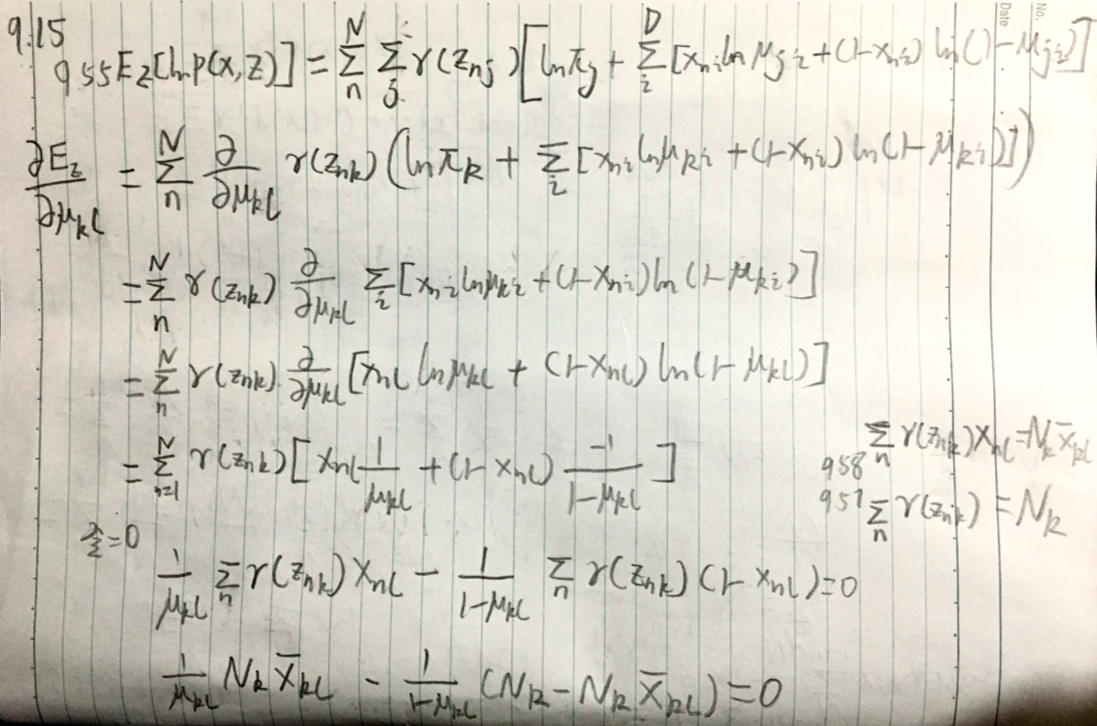 No.
Date
9.15
9 55 E_z[ln p(x,z)] = Σ_n^N Σ_j γ(z_nj) [ln π_j + Σ_i^D [x_ni ln μ_ji + (1-x_ni) ln(1-μ_ji)]]
∂E_z/∂μ_kl = Σ_n^N ∂/∂μ_kl γ(z_nk) (ln π_k + Σ_i [x_ni ln μ_ki + (1-x_ni) ln(1-μ_ki)])
= Σ_n^N γ(z_nk) ∂/∂μ_kl Σ_i [x_ni ln μ_ki + (1-x_ni) ln(1-μ_ki)]
= Σ_n^N γ(z_nk) ∂/∂μ_kl [x_nl ln μ_kl + (1-x_nl) ln(1-μ_kl)]
= Σ_{n=1}^N γ(z_nk) [x_nl 1/μ_kl + (1-x_nl) -1/(1-μ_kl)]
958 Σ_n γ(z_nk) x_nl = N_k x̄_kl
957 Σ_n γ(z_nk) = N_k
令=0
1/μ_kl Σ_n γ(z_nk) x_nl - 1/(1-μ_kl) Σ_n γ(z_nk)(1-x_nl) = 0
1/μ_kl N_k x̄_kl - 1/(1-μ_kl) (N_k - N_k x̄_kl) = 0